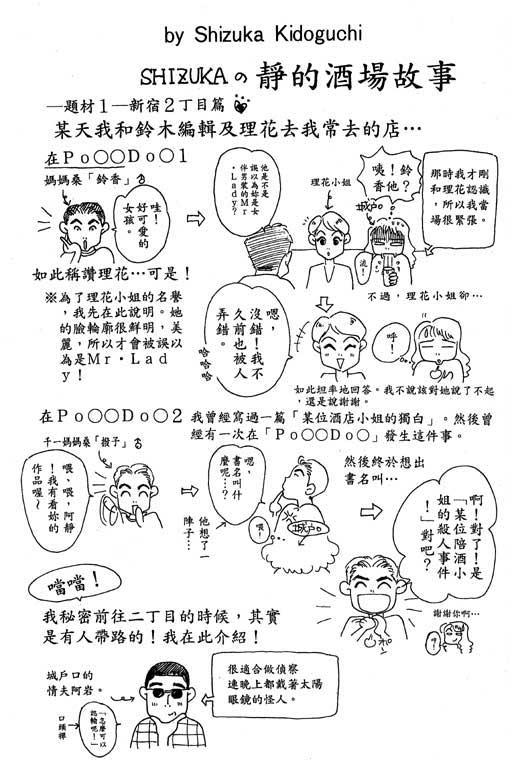 by Shizuka Kidoguchi
SHIZUKAの 靜的酒場故事
—題材1—新宿2丁目篇
某天我和鈴木編輯及理花去我常去的店…
在Po○○Do○1
媽媽桑「鈴香」♂
哇!
好可愛的
女孩。
如此稱讚理花…可是!
※為了理花小姐的名譽
,我先在此說明。她
的臉輪廓很鮮明,美
麗,所以才會被誤以
為是Mr·Lad
y!
他是不是
誤以為妳是女
伴男裝的Mr
·Lady?
理花小姐
咦!鈴
香他?
城戶口
流!
那時我才剛
和理花認識
,所以我當
場很緊張。
不過,理花小姐卻…
嗯,
沒錯!我不
久前也被人
弄錯。
哈哈哈
呼!
如此坦率地回答。我不說該對她說了不起
,還是說謝謝。
在Po○○Do○2
我曾經寫過一篇「某位酒店小姐的獨白」。然後曾
經有一次在「Po○○Do○」發生這件事。
千一媽媽桑「撥子」♂
喂、喂,阿靜
!我有看妳的
作品喔~
嗯,
書名叫什
麼呢…?
他想了一
陣子…
喂!
城戶口
然後終於想出
書名叫…
啊!對了!是
「某位陪酒小
姐的殺人事件
!」對吧?
謝謝你啊…
噹噹!
我秘密前往二丁目的時候,其實
是有人帶路的!我在此介紹!
城戶口的
情夫阿岩。
口頭禪
「怎麼可以
認輸呢!」
很適合做偵察
連晚上都戴著太陽
眼鏡的怪人。